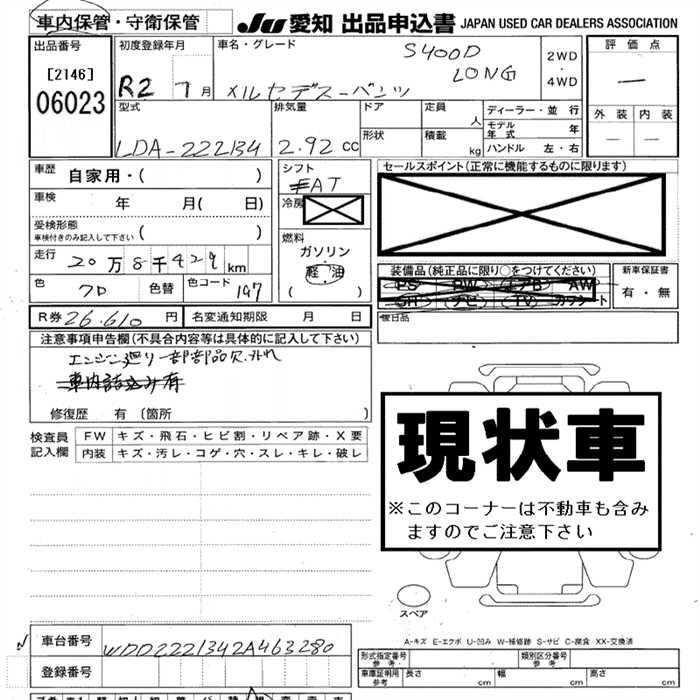 車内保管・守衛保管 JU 愛知 出品申込書 JAPAN USED CAR DEALERS ASSOCIATION
出品番号 初度登録年月 車名・グレード 評価点
[2146] 06023 R2 7月 メルセデスーベンツ S400D LONG 2WD ・ 4WD ー
型式 LDA-222134 排気量 2.92 cc ドア 定員 人 形状 積載 kg
ディーラー・並行
モデル年式 年
ハンドル 左・右
外装 内装
ー ー
車歴 自家用・( )
シフト FAT
セールスポイント(正常に機能するものに限ります)
車検 年 月( 日)
冷房
受検形態 車検付きのみ記入して下さい ( )
燃料 ガソリン・軽油 ( )
走行 20万8千429 km
装備品(純正品に限り○をつけてください) 新車保証書
PS PW エアB AW
SR ナビ TV カワシート
有・無
色 クロ 色替 色コード 197
R券 26.610 円 名変通知期限 月 日
後日品
注意事項申告欄(不具合内容等は具体的に記入して下さい)
エンジン廻り一部部品欠、外れ
車内詰込み有
修復歴 有 (箇所 )
現状車
※このコーナーは不動車も含み
ますのでご注意下さい
検査員記入欄 FW キズ・飛石・ヒビ割・リペア跡・X要
内装 キズ・汚レ・コゲ・穴・スレ・キレ・破レ
スペア
A-キズ E-エクボ U-凹み W-補修跡 S-サビ C-腐食 XX-交換済
車台番号 WDD2221342A463280
登録番号
形式指定番号 参考 類別区分番号 参考
車庫証明用 参考 長さ cm 幅 cm 高さ cm